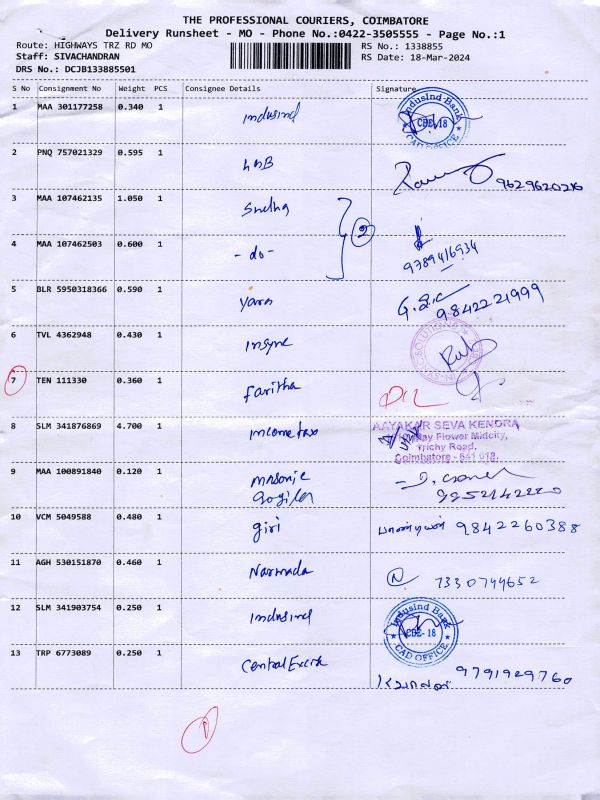 THE PROFESSIONAL COURIERS, COIMBATORE
Delivery Runsheet - MO - Phone No.:0422-3505555 - Page No.:1
Route: HIGHWAYS TRZ RD MO RS No.: 1338855
Staff: SIVACHANDRAN RS Date: 18-Mar-2024
DRS No.: DCJB133885501
S No Consignment No Weight PCS Consignee Details Signature
1 MAA 301177258 0.340 1 Indusind IndusInd Bank CBE-18 CAD OFFICE
2 PNQ 757021329 0.595 1 9629620216
3 MAA 107462135 1.050 1 Sneha
2
4 MAA 107462503 0.600 1 -do- 9789416934
5 BLR 5950318366 0.590 1 Yaron 9842221999
6 TVL 4362948 0.430 1 Insync
7 TEN 111330 0.360 1 Faritha
8 SLM 341876869 4.700 1 Income tax AAYAKAR SEVA KENDRA
Flower Midcity,
Trichy Road,
Coimbatore - 641 018.
9 MAA 100891840 0.120 1 Masonic
10 VCM 5049588 0.480 1 giri பாண்டியன் 9842260388
11 AGH 530151870 0.460 1 Narmada N 7330744652
12 SLM 341903754 0.250 1 Indusind IndusInd Bank CBE-18 CAD OFFICE
13 TRP 6773089 0.250 1 Central Excise 9791929760